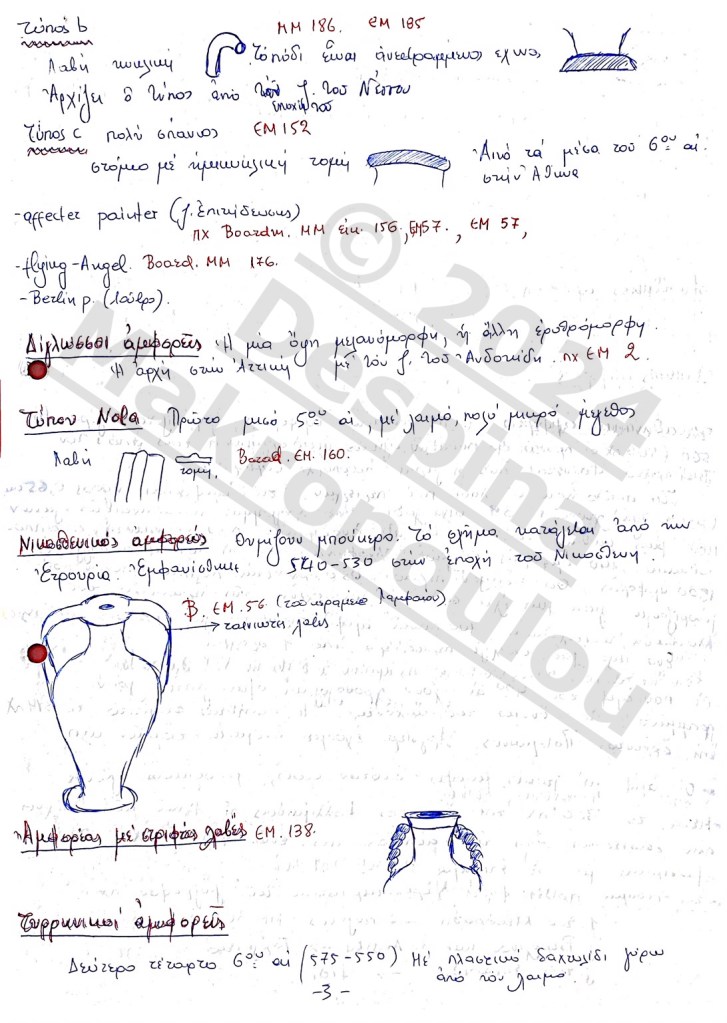 Τύπος b ΜΜ 186. ΕΜ 185
Λαβή κυκλική Το πόδι εἶναι ἀνεστραμμένος ἐχῖνος
Ἀρχίζει ὁ τύπος ἀπό τήν ἐποχή τοῦ ζ. τοῦ Νέσσου
Τύπος c πολύ σπάνιος ΕΜ 152
στόμιο μέ ἡμικυκλική τομή Ἀπό τά μέσα τοῦ 6ου αἰ. στήν Ἀθήνα
-affecter painter (ζ. ἐπιτήδευσης)
πχ Boardm. ΜΜ εἰκ. 156, ΕΜ 57,
-flying-Angel. Board. ΜΜ 176.
-Berlin p. (Λοῦβρο).
Δίγλωσσοι ἀμφορεῖς Ἡ μία ὄψη μελανόμορφη, ἡ ἄλλη ἐρυθρόμορφη.
Ἡ ἀρχή στήν Ἀττική μέ τόν ζ. τοῦ Ἀνδοκίδη. πχ ΕΜ 2.
Τύπου Nola Πρῶτο μισό 5ου αἰ, μέ λαιμό, πολύ μικρό μέγεθος
Λαβή τομή Board. ΕΜ. 160.
Νικοσθενικός ἀμφορεύς Θυμίζουν μπούκερο. Τό σχῆμα κατάγεται ἀπό τήν
Ἐτρουρία. Ἐμφανίσθηκε 540-530 στήν ἐποχή τοῦ Νικοσθένη.
Β. ΕΜ. 56 (τοῦ κεραμέα Παμφαίου)
ταινιωτές λαβές
Ἀμφορέας μέ στριφτές λαβές ΕΜ. 138.
Τυρρηνικοί ἀμφορεῖς
Δεύτερο τέταρτο 6ου αἰ (575-550) Μέ πλαστικό δαχτυλίδι γύρω
ἀπό τόν λαιμό.
-3-
© 2024
Despina
Makropoulou